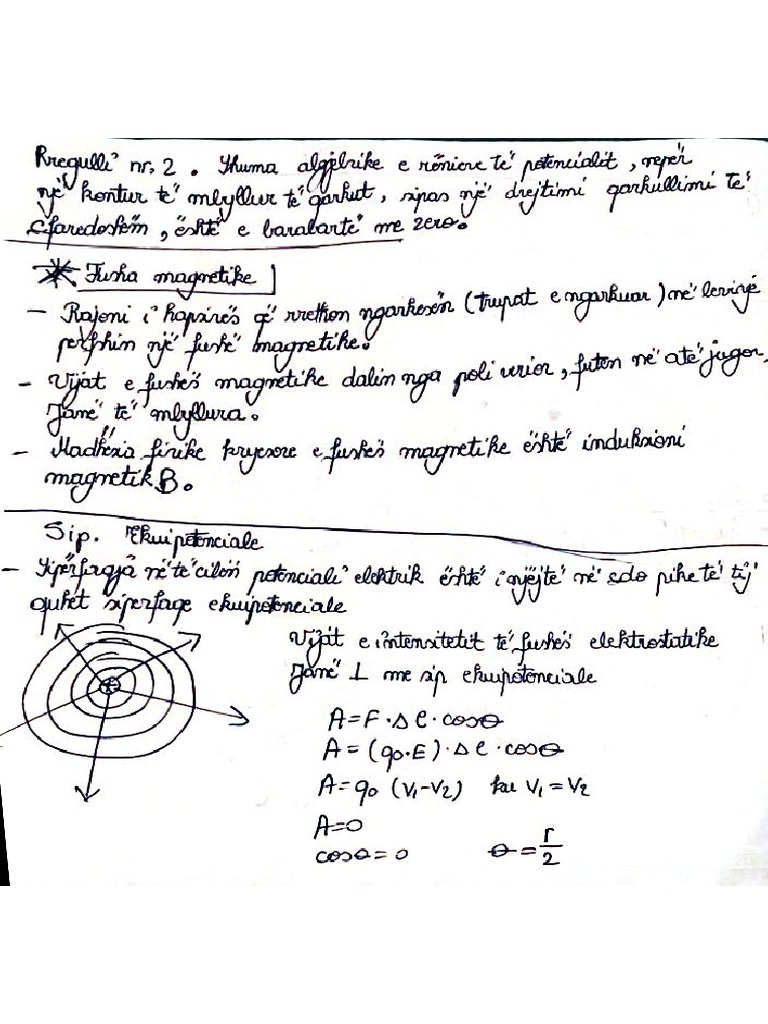 Rregulli nr. 2. Shuma algjebrike e rënieve të potencialit, nëpër
një kontur të mbyllur të qarkut, sipas një drejtimi qarkullimi të
çfaredoshëm, është e barabartë me zero.
Fusha magnetike
- Rajoni i hapsirës që rrethon ngarkesën (trupat e ngarkuar) në levizje
përfshin një fushë magnetike.
- Vijat e fushës magnetike dalin nga poli verior, futen në atë jugor.
Janë të mbyllura.
- Madhësia fizike kryesore e fushës magnetike është induksioni
magnetik B.
Sip. Ekuipotenciale
- Sipërfaqja në të cilën potenciali elektrik është i njëjtë në çdo pikë të tij
quhet siperfaqe ekuipotenciale
Vijat e intensitetit të fushës elektrostatike
Janë ⊥ me sip ekuipotenciale
A=F·Δl·cosθ
A=(q₀·E)·Δl·cosθ
A=q₀ (V₁-V₂) ku V₁=V₂
A=0
cosθ=0 θ=r/2